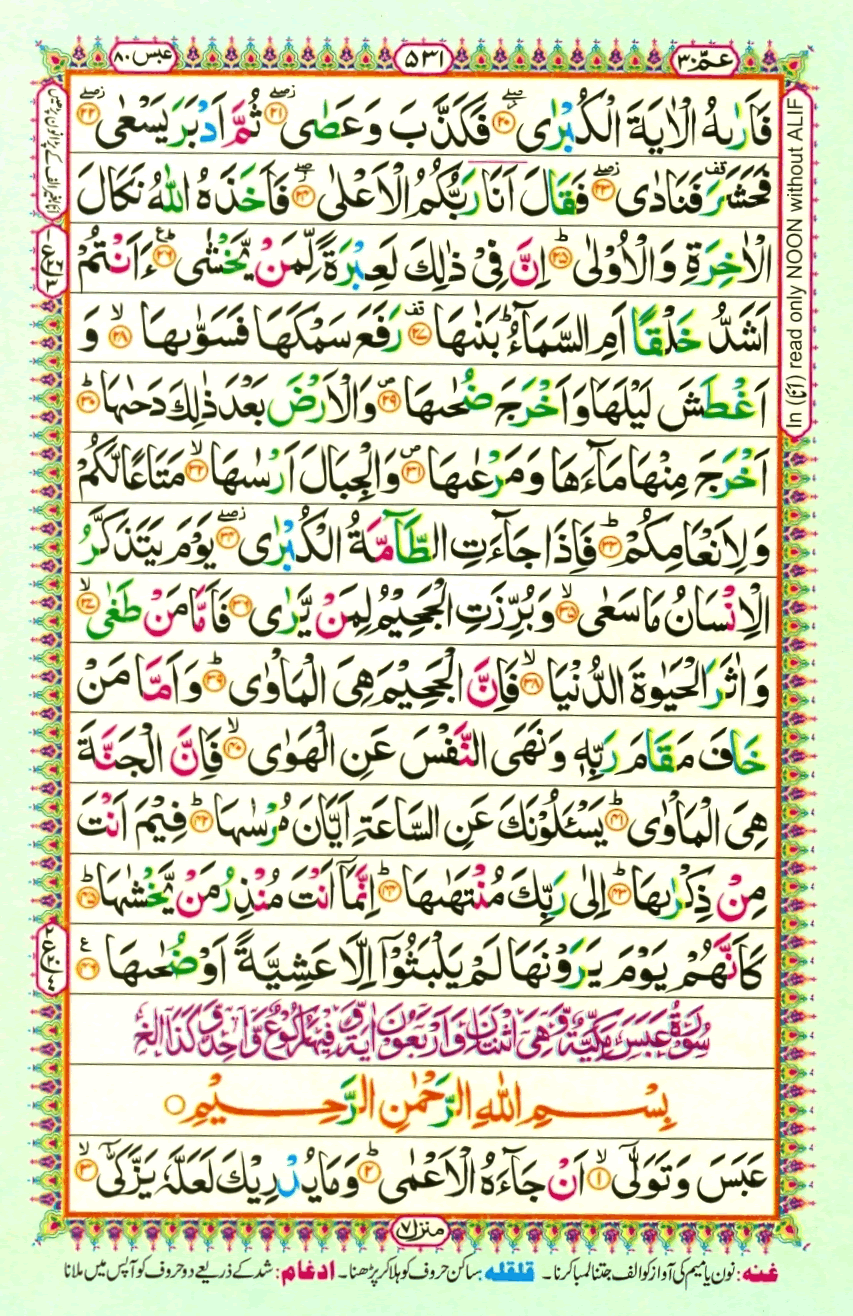 عَمَّ ٣٠
٥٣١
عبس ٨٠
فَاَرٰىهُ الْاٰيَةَ الْكُبْرٰى ﴿٢٠﴾ فَكَذَّبَ وَعَصٰى ﴿٢١﴾ ثُمَّ اَدْبَرَ يَسْعٰى ﴿٢٢﴾
فَحَشَرَ فَنَادٰى ﴿٢٣﴾ فَقَالَ اَنَا رَبُّكُمُ الْاَعْلٰى ﴿٢٤﴾ فَاَخَذَهُ اللّٰهُ نَكَالَ
الْاٰخِرَةِ وَالْاُوْلٰى ﴿٢٥﴾ اِنَّ فِيْ ذٰلِكَ لَعِبْرَةً لِّمَنْ يَّخْشٰى ﴿٢٦﴾ ءَاَنْتُمْ
اَشَدُّ خَلْقًا اَمِ السَّمَآءُ بَنٰىهَا ﴿٢٧﴾ رَفَعَ سَمْكَهَا فَسَوّٰىهَا ﴿٢٨﴾ وَ
اَغْطَشَ لَيْلَهَا وَاَخْرَجَ ضُحٰىهَا ﴿٢٩﴾ وَالْاَرْضَ بَعْدَ ذٰلِكَ دَحٰىهَا ﴿٣٠﴾
اَخْرَجَ مِنْهَا مَآءَهَا وَمَرْعٰىهَا ﴿٣١﴾ وَالْجِبَالَ اَرْسٰىهَا ﴿٣٢﴾ مَتَاعًا لَّكُمْ
وَلِاَنْعَامِكُمْ ﴿٣٣﴾ فَاِذَا جَآءَتِ الطَّآمَّةُ الْكُبْرٰى ﴿٣٤﴾ يَوْمَ يَتَذَكَّرُ
الْاِنْسَانُ مَا سَعٰى ﴿٣٥﴾ وَبُرِّزَتِ الْجَحِيْمُ لِمَنْ يَّرٰى ﴿٣٦﴾ فَاَمَّا مَنْ طَغٰى ﴿٣٧﴾
وَاٰثَرَ الْحَيٰوةَ الدُّنْيَا ﴿٣٨﴾ فَاِنَّ الْجَحِيْمَ هِيَ الْمَاْوٰى ﴿٣٩﴾ وَاَمَّا مَنْ
خَافَ مَقَامَ رَبِّهٖ وَنَهَى النَّفْسَ عَنِ الْهَوٰى ﴿٤٠﴾ فَاِنَّ الْجَنَّةَ
هِيَ الْمَاْوٰى ﴿٤١﴾ يَسْـَٔلُوْنَكَ عَنِ السَّاعَةِ اَيَّانَ مُرْسٰىهَا ﴿٤٢﴾ فِيْمَ اَنْتَ
مِنْ ذِكْرٰىهَا ﴿٤٣﴾ اِلٰى رَبِّكَ مُنْتَهٰىهَا ﴿٤٤﴾ اِنَّمَآ اَنْتَ مُنْذِرُ مَنْ يَّخْشٰىهَا ﴿٤٥﴾
كَاَنَّهُمْ يَوْمَ يَرَوْنَهَا لَمْ يَلْبَثُوْٓا اِلَّا عَشِيَّةً اَوْ ضُحٰىهَا ﴿٤٦﴾
سُوْرَةُ عَبَسَ مَكِّيَّةٌ وَّهِيَ اثْنَتَانِ وَاَرْبَعُوْنَ اٰيَةً وَّفِيْهَا رُكُوْعٌ وَّاحِدٌ
بِسْمِ اللّٰهِ الرَّحْمٰنِ الرَّحِيْمِ
عَبَسَ وَتَوَلّٰىٓ ﴿١﴾ اَنْ جَآءَهُ الْاَعْمٰى ﴿٢﴾ وَمَا يُدْرِيْكَ لَعَلَّهٗ يَزَّكّٰىٓ ﴿٣﴾
In (اَنَا) read only NOON without ALIF
منزل ٧
غنه: نون یا میم کی آواز کو الف جتنا لمبا کرنا۔ قلقله: ساکن حروف کو ہلا کر پڑھنا۔ ادغام: شد کے ذریعے دو حروف کو آپس میں ملانا